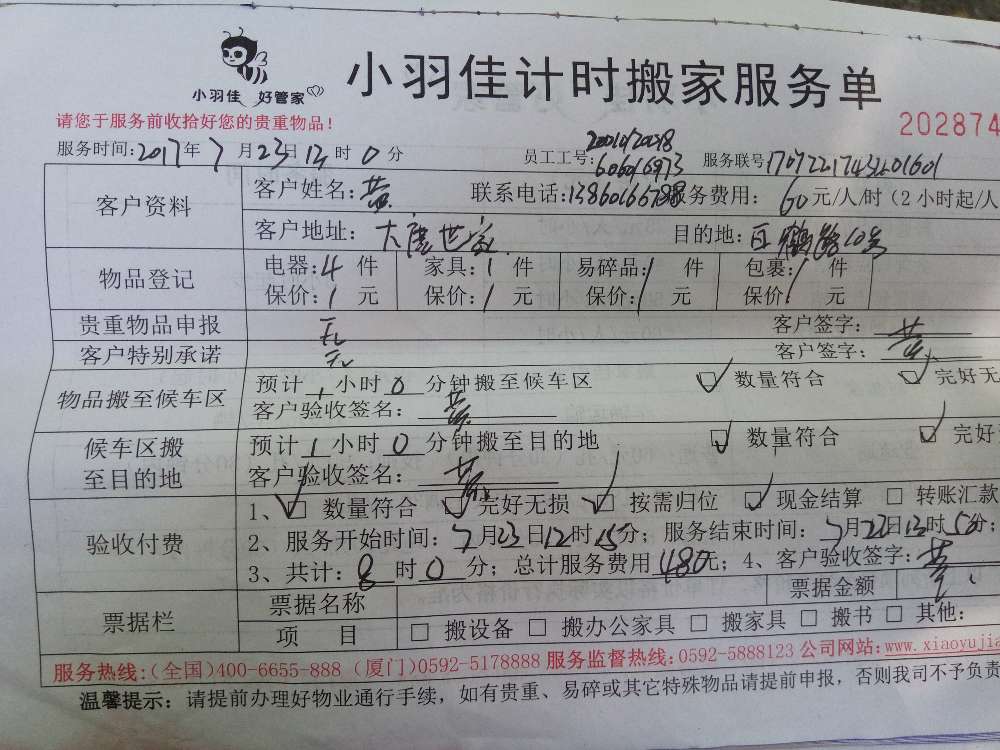 小羽佳 好管家
小羽佳计时搬家服务单
请您于服务前收拾好您的贵重物品！
202874
服务时间：2017年7月23日12时0分 员工工号： 服务联号
客户资料 客户姓名：黄 联系电话： 服务费用：60元/人/时（2小时起/人
客户地址： 目的地：
物品登记 电器：4件 家具：1件 易碎品：1件 包裹：1件
保价：1元 保价：1元 保价：1元 保价：1元
贵重物品申报 无 客户签字：黄
客户特别承诺 无 客户签字：黄
物品搬至候车区 预计1小时0分钟搬至候车区 数量符合 完好无
客户验收签名：黄
候车区搬至目的地 预计1小时0分钟搬至目的地 数量符合 完好
客户验收签名：黄
验收付费 1、数量符合 完好无损 按需归位 现金结算 转账汇款
2、服务开始时间：7月23日12时15分；服务结束时间：7月23日
3、共计：8时0分；总计服务费用480元；4、客户验收签字：黄
票据栏 票据名称 票据金额
项目 搬设备 搬办公家具 搬家具 搬书 其他：
服务热线：（全国）400-6655-888（厦门）0592-5178888 服务监督热线：0592-5888123 公司网站：www.xiaoyujia
温馨提示：请提前办理好物业通行手续，如有贵重、易碎或其它特殊物品请提前申报，否则我司不予负责